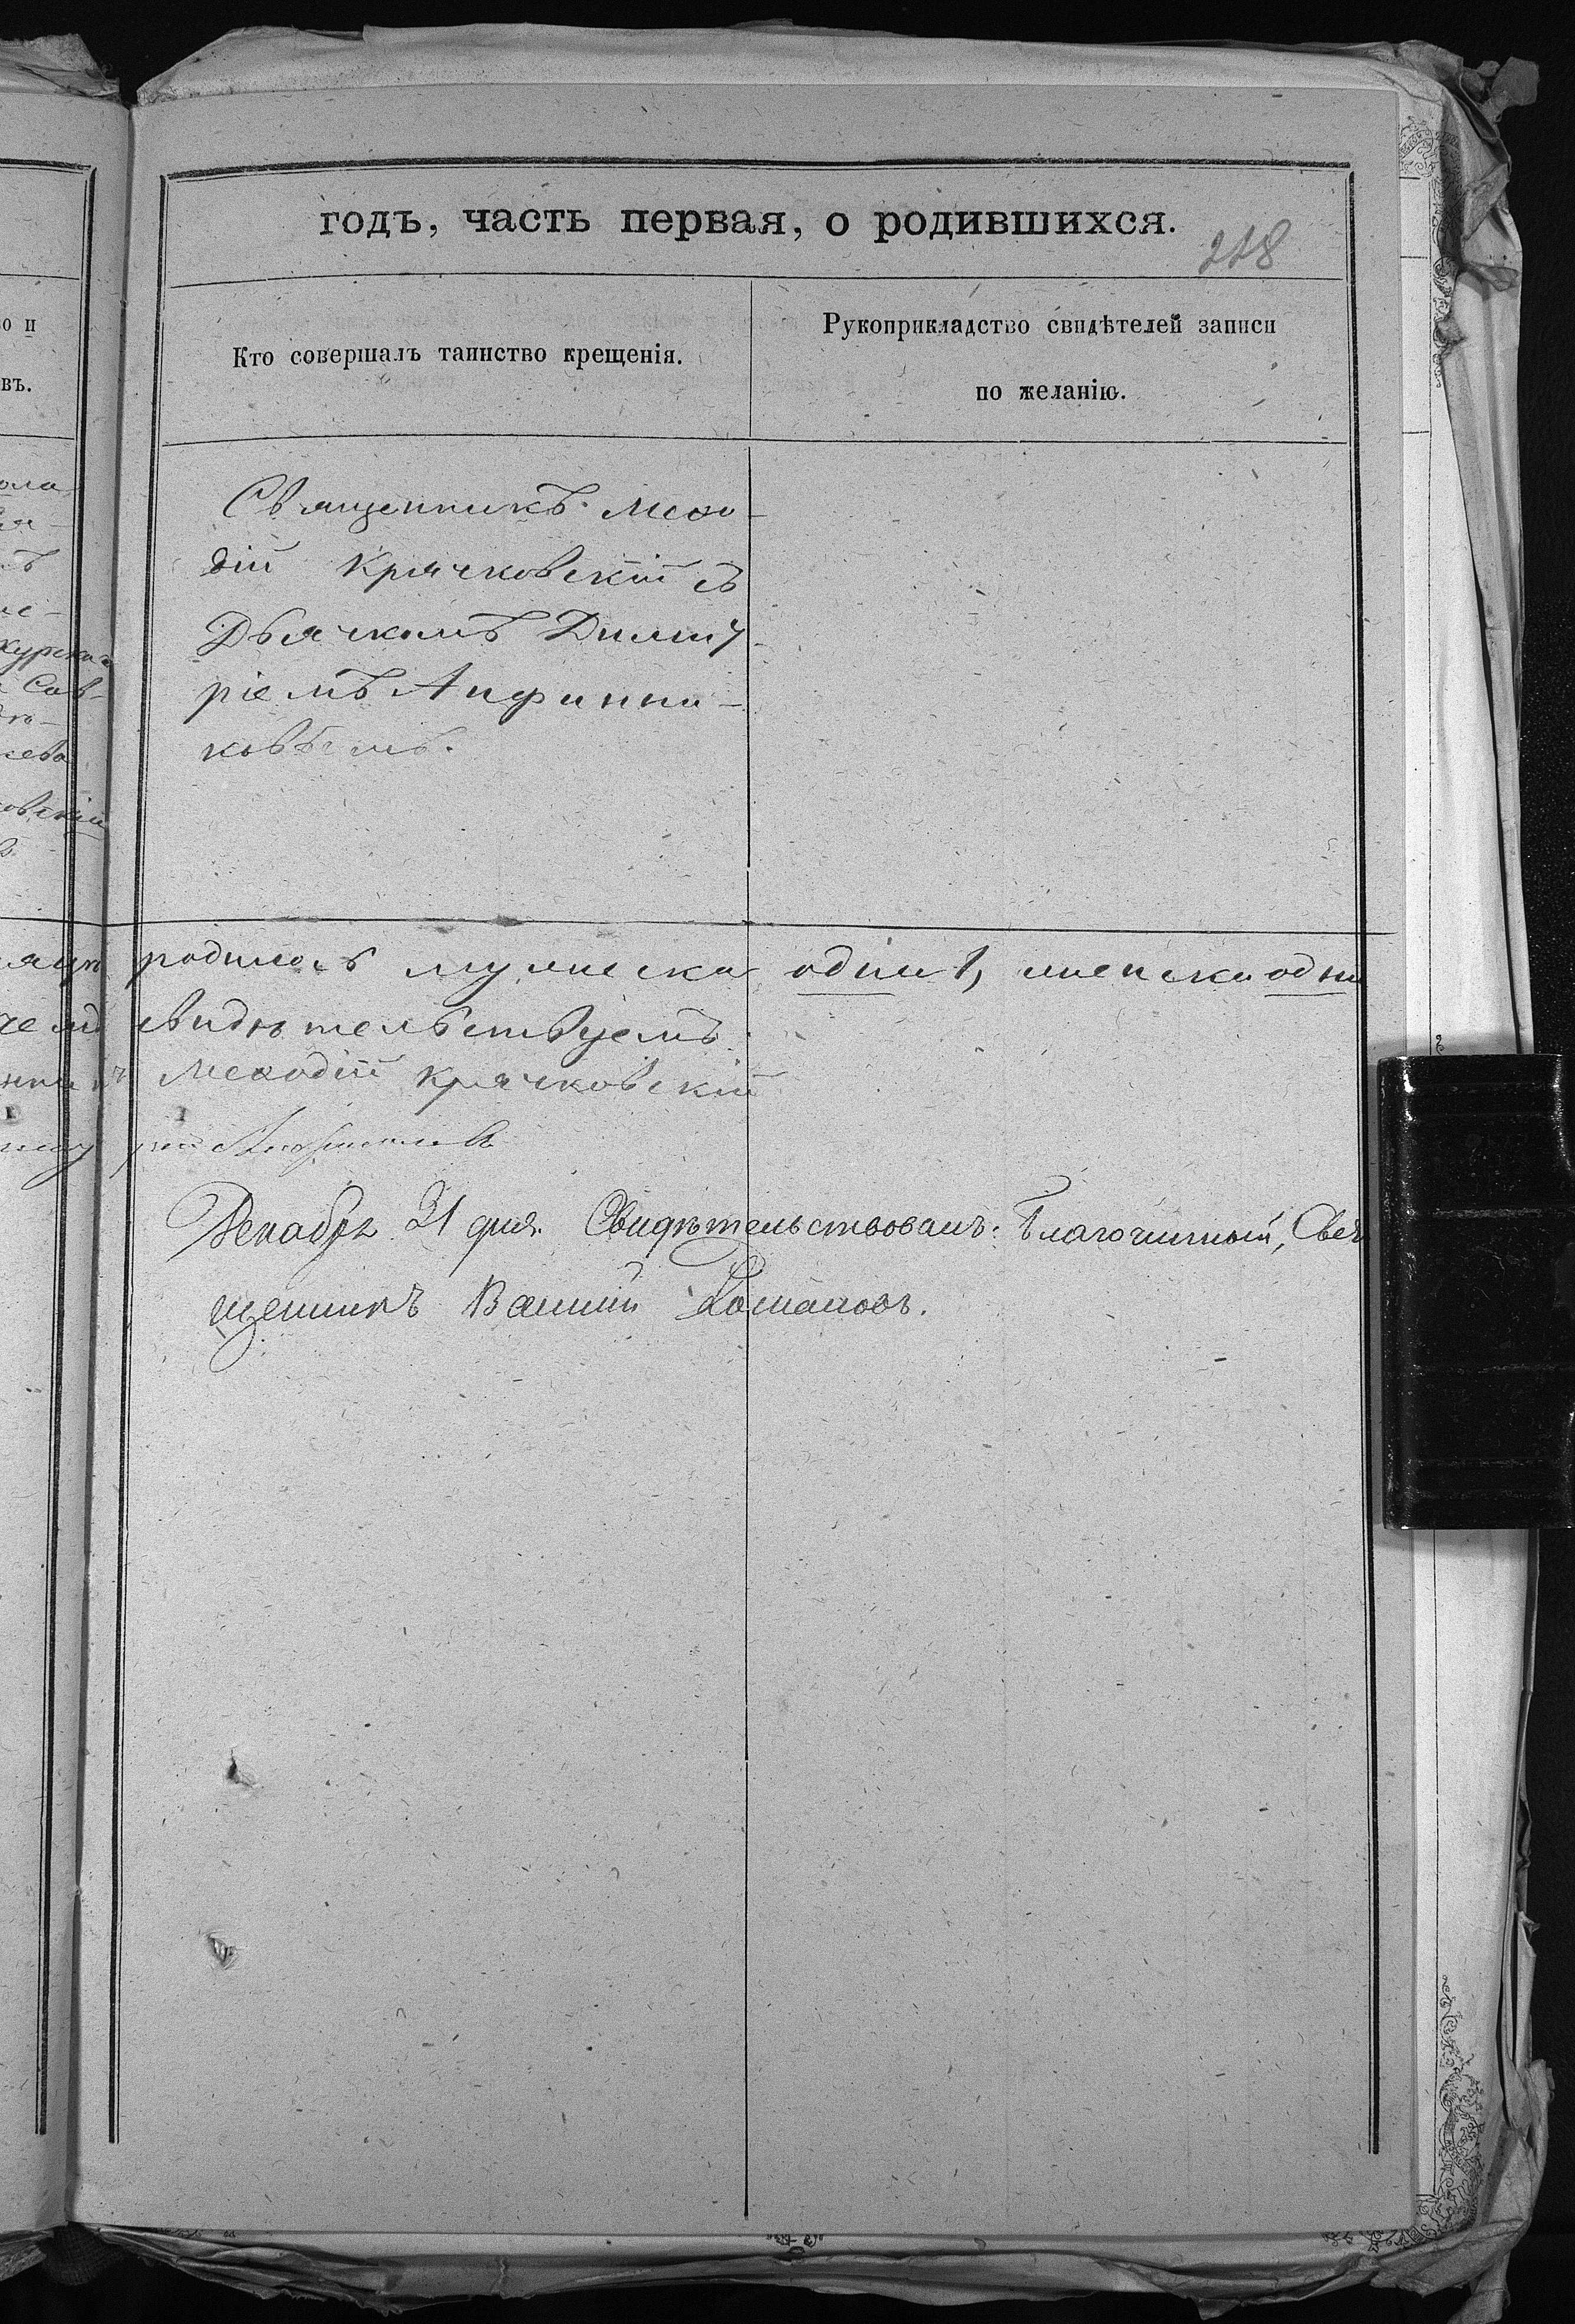 годъ, часть первая, о родившихся.
218
Кто совершалъ таинство крещенія.
Рукоприкладство свидѣтелей записи
по желанію.
Священникъ Меѳо-
дій Крячковскій съ
Дьячкомъ Димит-
ріемъ
ковымъ.
родилось мужеска одинъ 1, женска одна
свидѣтельствуемъ
Меѳодій Крячковскій
Декабря 31 дня. Свидѣтельствовалъ: Благочинный, Свя
щенникъ